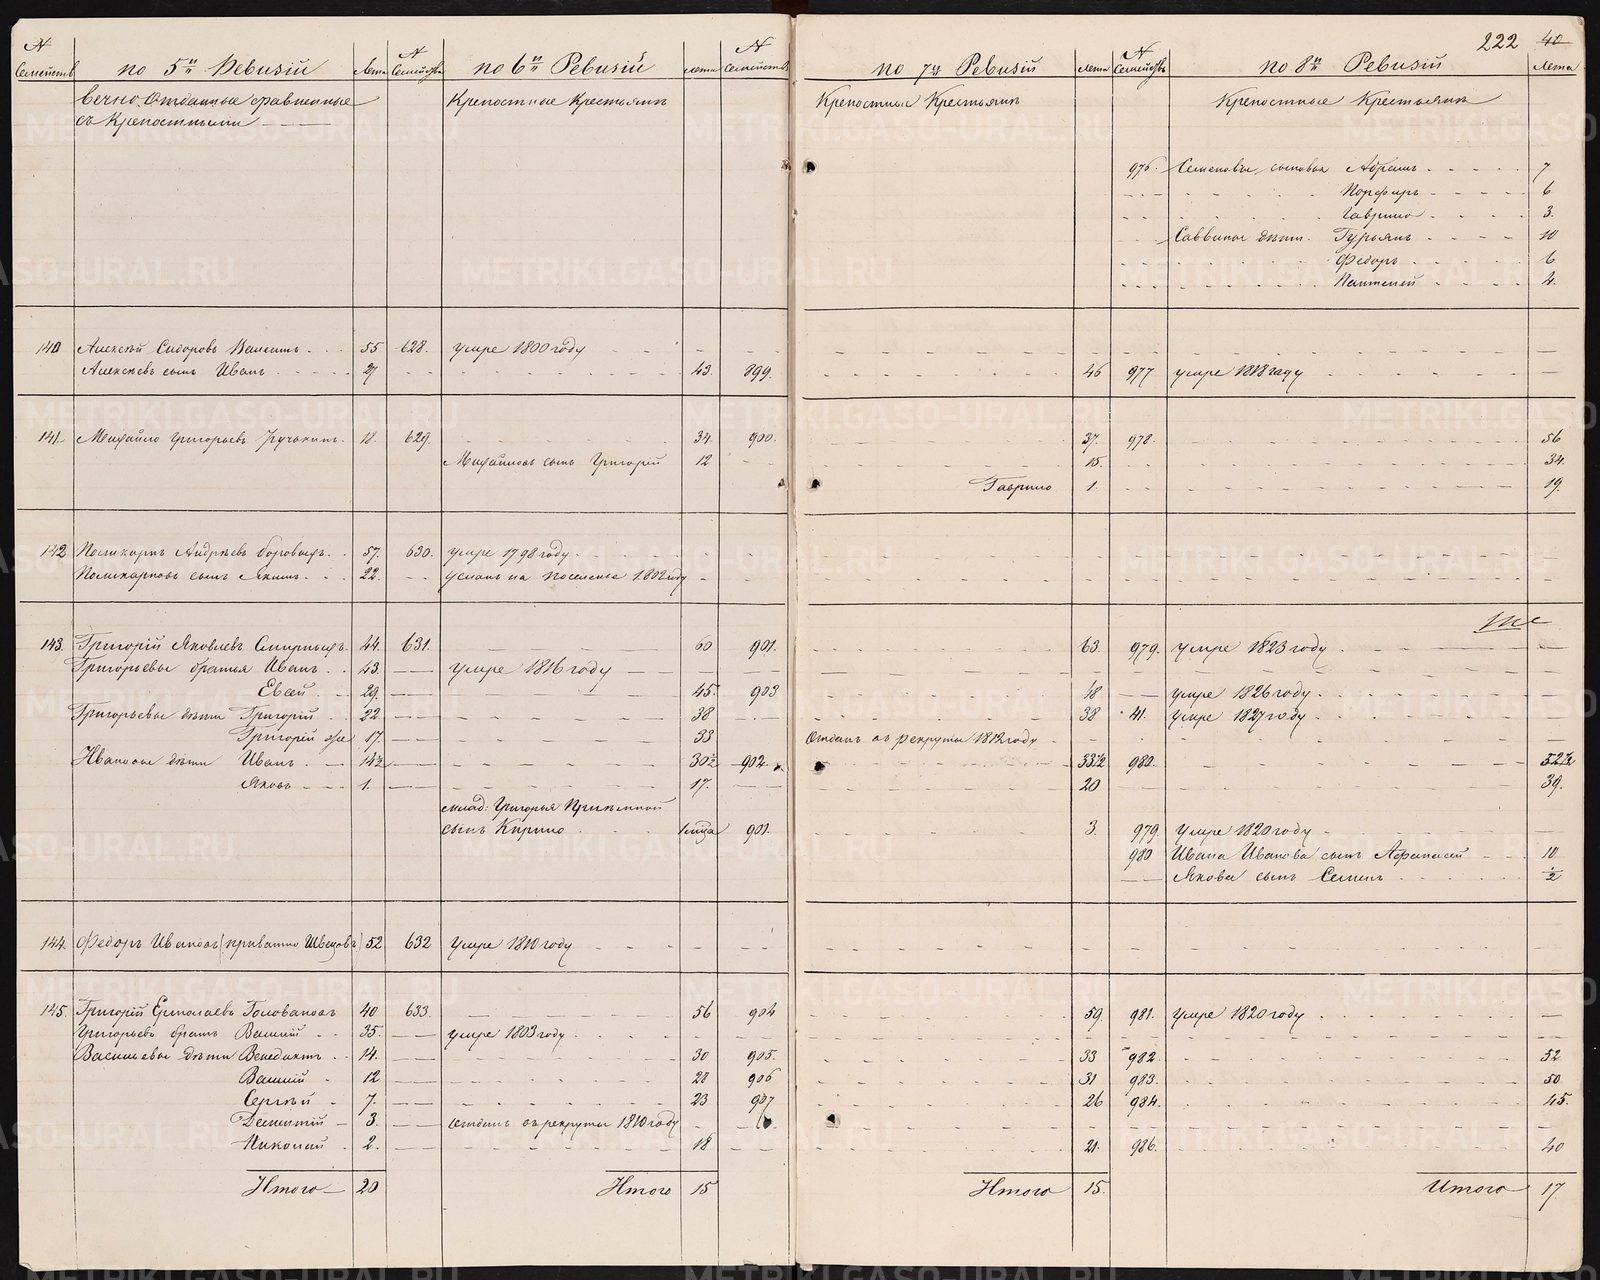 222 40
№ Семействъ по 5й Ревизіи Лета № Семействъ по 6й Ревизіи лета № Семействъ по 7й Ревизіи лета № Семействъ по 8й Ревизіи Лета
Вечно Отданные Сравненные Крепостные Крестьянъ Крепостные Крестьянъ Крепостные Крестьянъ
съ Крепостными
976. Семеновы сыновья Абрамъ 7
Порфиръ 6
Гаврило 3.
Саввины дѣти. Гурьянъ 10
Федоръ 6
Пантелей 4.
140 Алексѣй Сидоровъ 55 628. умре 1800 году
Алексѣевъ сынъ Иванъ 27 43. 899. 46 977 умре 1818 году
141. Михайло Григорьевъ 18. 629. 34. 900. 37. 978. 56
Михайловъ сынъ Григорій 12 15. 34.
Гаврило 1. 19.
142 Поликарпъ Андрѣевъ Боровыхъ 57. 630. умре 1798 году.
Поликарповъ сынъ Якимъ 22. усланъ на поселенье 1802 году
143. Григорій Яковлевъ Смирныхъ 44. 631. 60 901. 63. 979. умре 1823 году
Григорьевы братья Иванъ 43. умре 1816 году
Евсей 29. 45. 903 48 умре 1826 году.
Григорьевы дѣти Григорій 22 38 38 41. умре 1827 году
Григорій же 17. 33 Отданъ въ рекруты 1812 году
Ивановы дѣти Иванъ 14½ 30½ 902. 33½ 980. 52½
Яковъ 1. 17. 20 39.
млад: Григорья Пріемной
сынъ Кирило 901. 3. 979. умре 1820 году
980 Ивана Иванова сынъ Афанасей 10
Якова сынъ Семенъ ½
144. Федоръ Ивановъ (приватно Швецовъ) 52 632 умре 1810 году
145. Григорій Ермолаевъ Головановъ 40 633. 56 904 59. 981. умре 1820 году
Григорьевъ братъ Василій 35. умре 1803 году.
Васильевы дѣти Венедиктъ 14. 30 905. 33 982. 52
Василій 12 28 906 31 983. 50
Сергѣй 7. 23 907 26 984. 45.
Дементій 3. отданъ въ рекруты 1810 году
Николай 2. 18 21. 986. 40
Итого 20 Итого 15 Итого 15. Итого 17.
METRIKI.GASO-URAL.RU